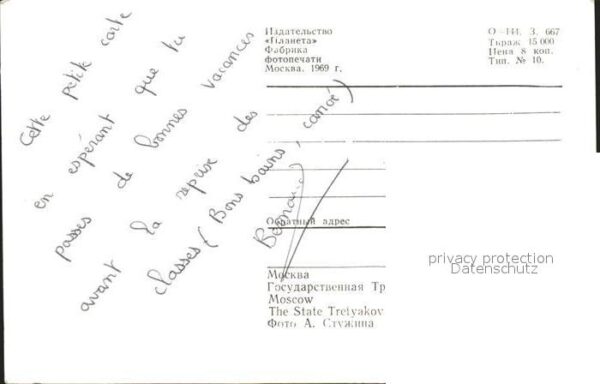 Cette petite carte
en espérant que tu
passes de bonnes vacances
avant la reprise des
classes (Bons bains, canoë)
Издательство
«Планета»
Фабрика
фотопечати
Москва. 1969 г.
О—144. З. 667
Тираж 15 000
Цена 8 коп.
Тип. № 10.
Обратный адрес
Москва
Государственная Тр
Moscow
The State Tretyakov
Фото А. Стужина
privacy protection
Datenschutz